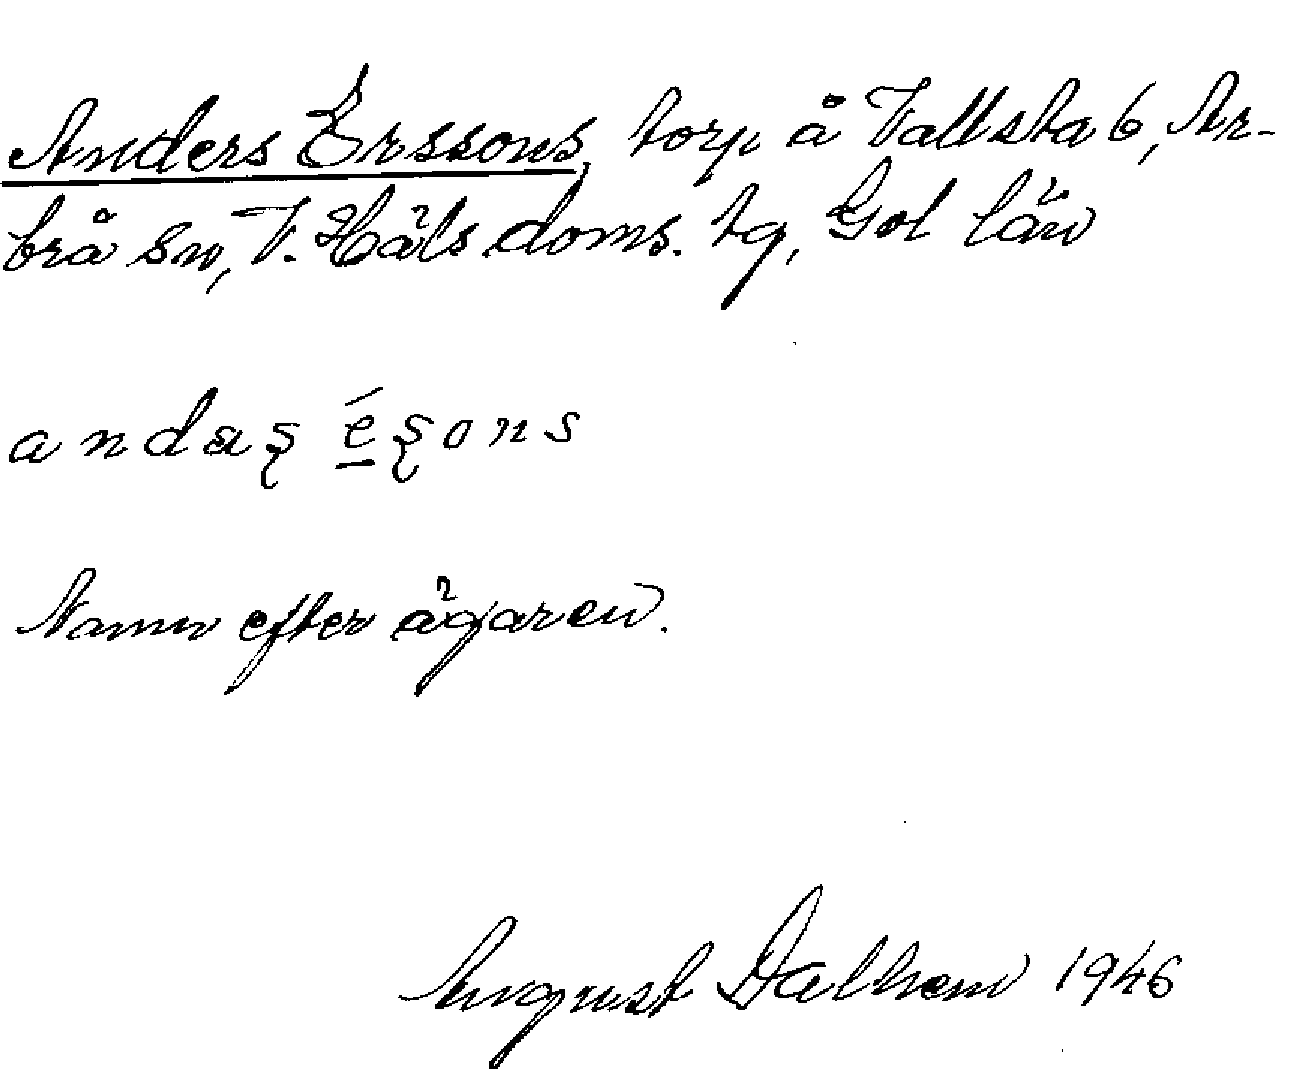 Anders Erssons, torp å Vallsta 6, Ar-
brå sn, V. Häls doms. tg, Gol län
andaʂ éʂons
Namn efter ägaren.
August Dalhem 1946